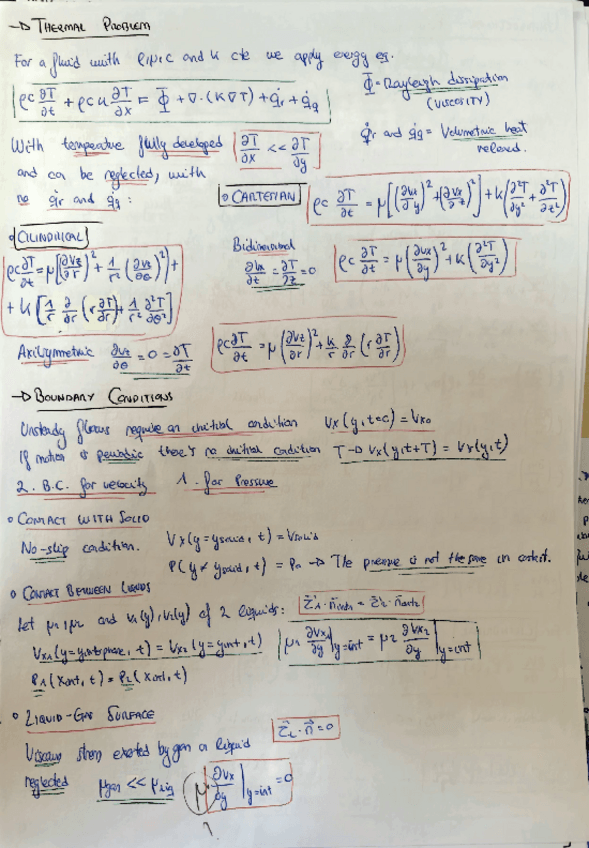 → THERMAL PROBLEM
For a fluid with ρ, μ, c and k cte we apply energy eq.
ρc ∂T/∂t + ρcu ∂T/∂x = Φ̄ + ∇·(K∇T) + q̇r + q̇q
Φ̄ = Rayleigh dissipation
(VISCOSITY)
q̇r and q̇q = Volumetric heat
released.
With temperature fully developed ∂T/∂x << ∂T/∂y
and can be neglected, with
no q̇r and q̇q :
▫ CARTERIAN ρc ∂T/∂t = μ[(∂vx/∂y)² + (∂vx/∂z)²] + k(∂²T/∂y² + ∂²T/∂z²)
▫ CILINDRICAL
ρc ∂T/∂t = μ[(∂vz/∂r)² + 1/r² (∂vz/∂θ)²] +
+ k[1/r ∂/∂r (r ∂T/∂r) + 1/r² ∂²T/∂θ²]
Bidimensional
∂vx/∂z = ∂T/∂z = 0 ρc ∂T/∂t = μ(∂vx/∂y)² + k(∂²T/∂y²)
Axilsymmetric ∂vz/∂θ = 0 = ∂T/∂t ρc ∂T/∂t = μ(∂vz/∂r)² + k/r ∂/∂r (r ∂T/∂r)
→ BOUNDARY CONDITIONS
Unsteady flows require an initial condition Vx(y,t=0) = Vx0
If motion is periodic there's no initial condition T → Vx(y,t+T) = Vx(y,t)
2. B.C. for velocity 1. for Pressure
▫ CONTACT WITH SOLID
No-slip condition. Vx(y=ysolid, t) = Vsolid
P(y≠ysolid, t) = Po → The pressure is not the same in contact.
▫ CONTACT BETWEEN LIQUIDS
Let μ1, μ2 and v1(y), v2(y) of 2 liquids:
Vx1(y=yinterphase, t) = Vx2(y=yint, t) μ1 ∂Vx1/∂y |y=int = μ2 ∂Vx2/∂y |y=int
P1(Xint, t) = P2(Xint, t)
▫ LIQUID-GAS SURFACE
Viscous stress exerted by gas on liquid
neglected μgas << μliq μ ∂Vx/∂y |y=int = 0